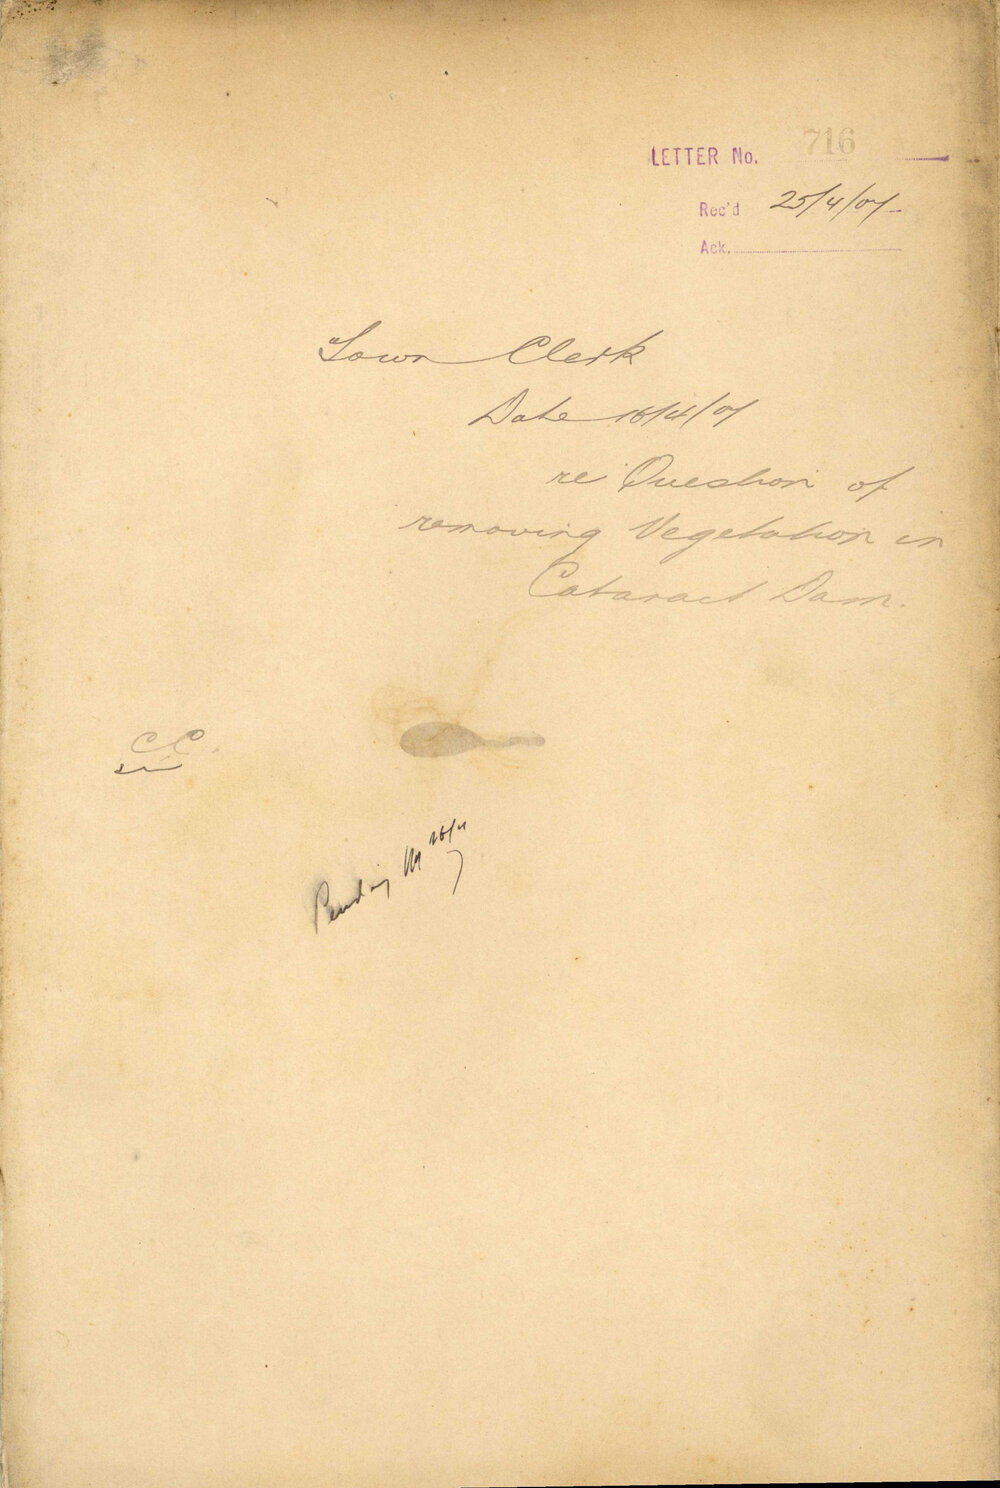 LETTER No. 716
Rec'd 25/4/07
Ack.
Town Clerk
Date 16/4/07
re Question of
removing Vegetation in
Cataract Dam.
C.E.
Pending